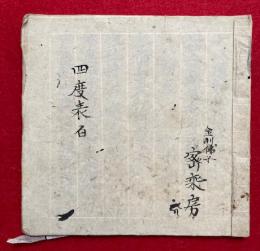 四度表白
金剛佛子
密乘房